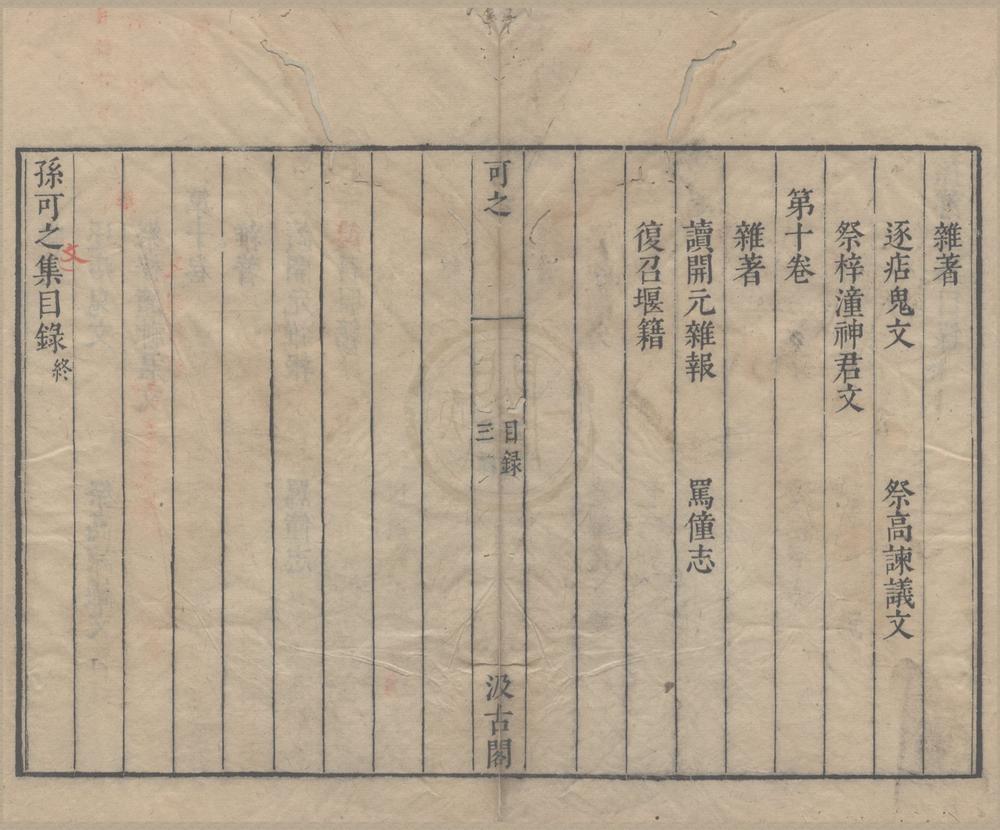 雜著
逐痁鬼文　祭高諫議文
祭梓潼神君文
第十卷
雜著
讀開元雜報　罵僮志
復召堰籍
可之　目録　三　汲古閣
孫可之集目錄終
文